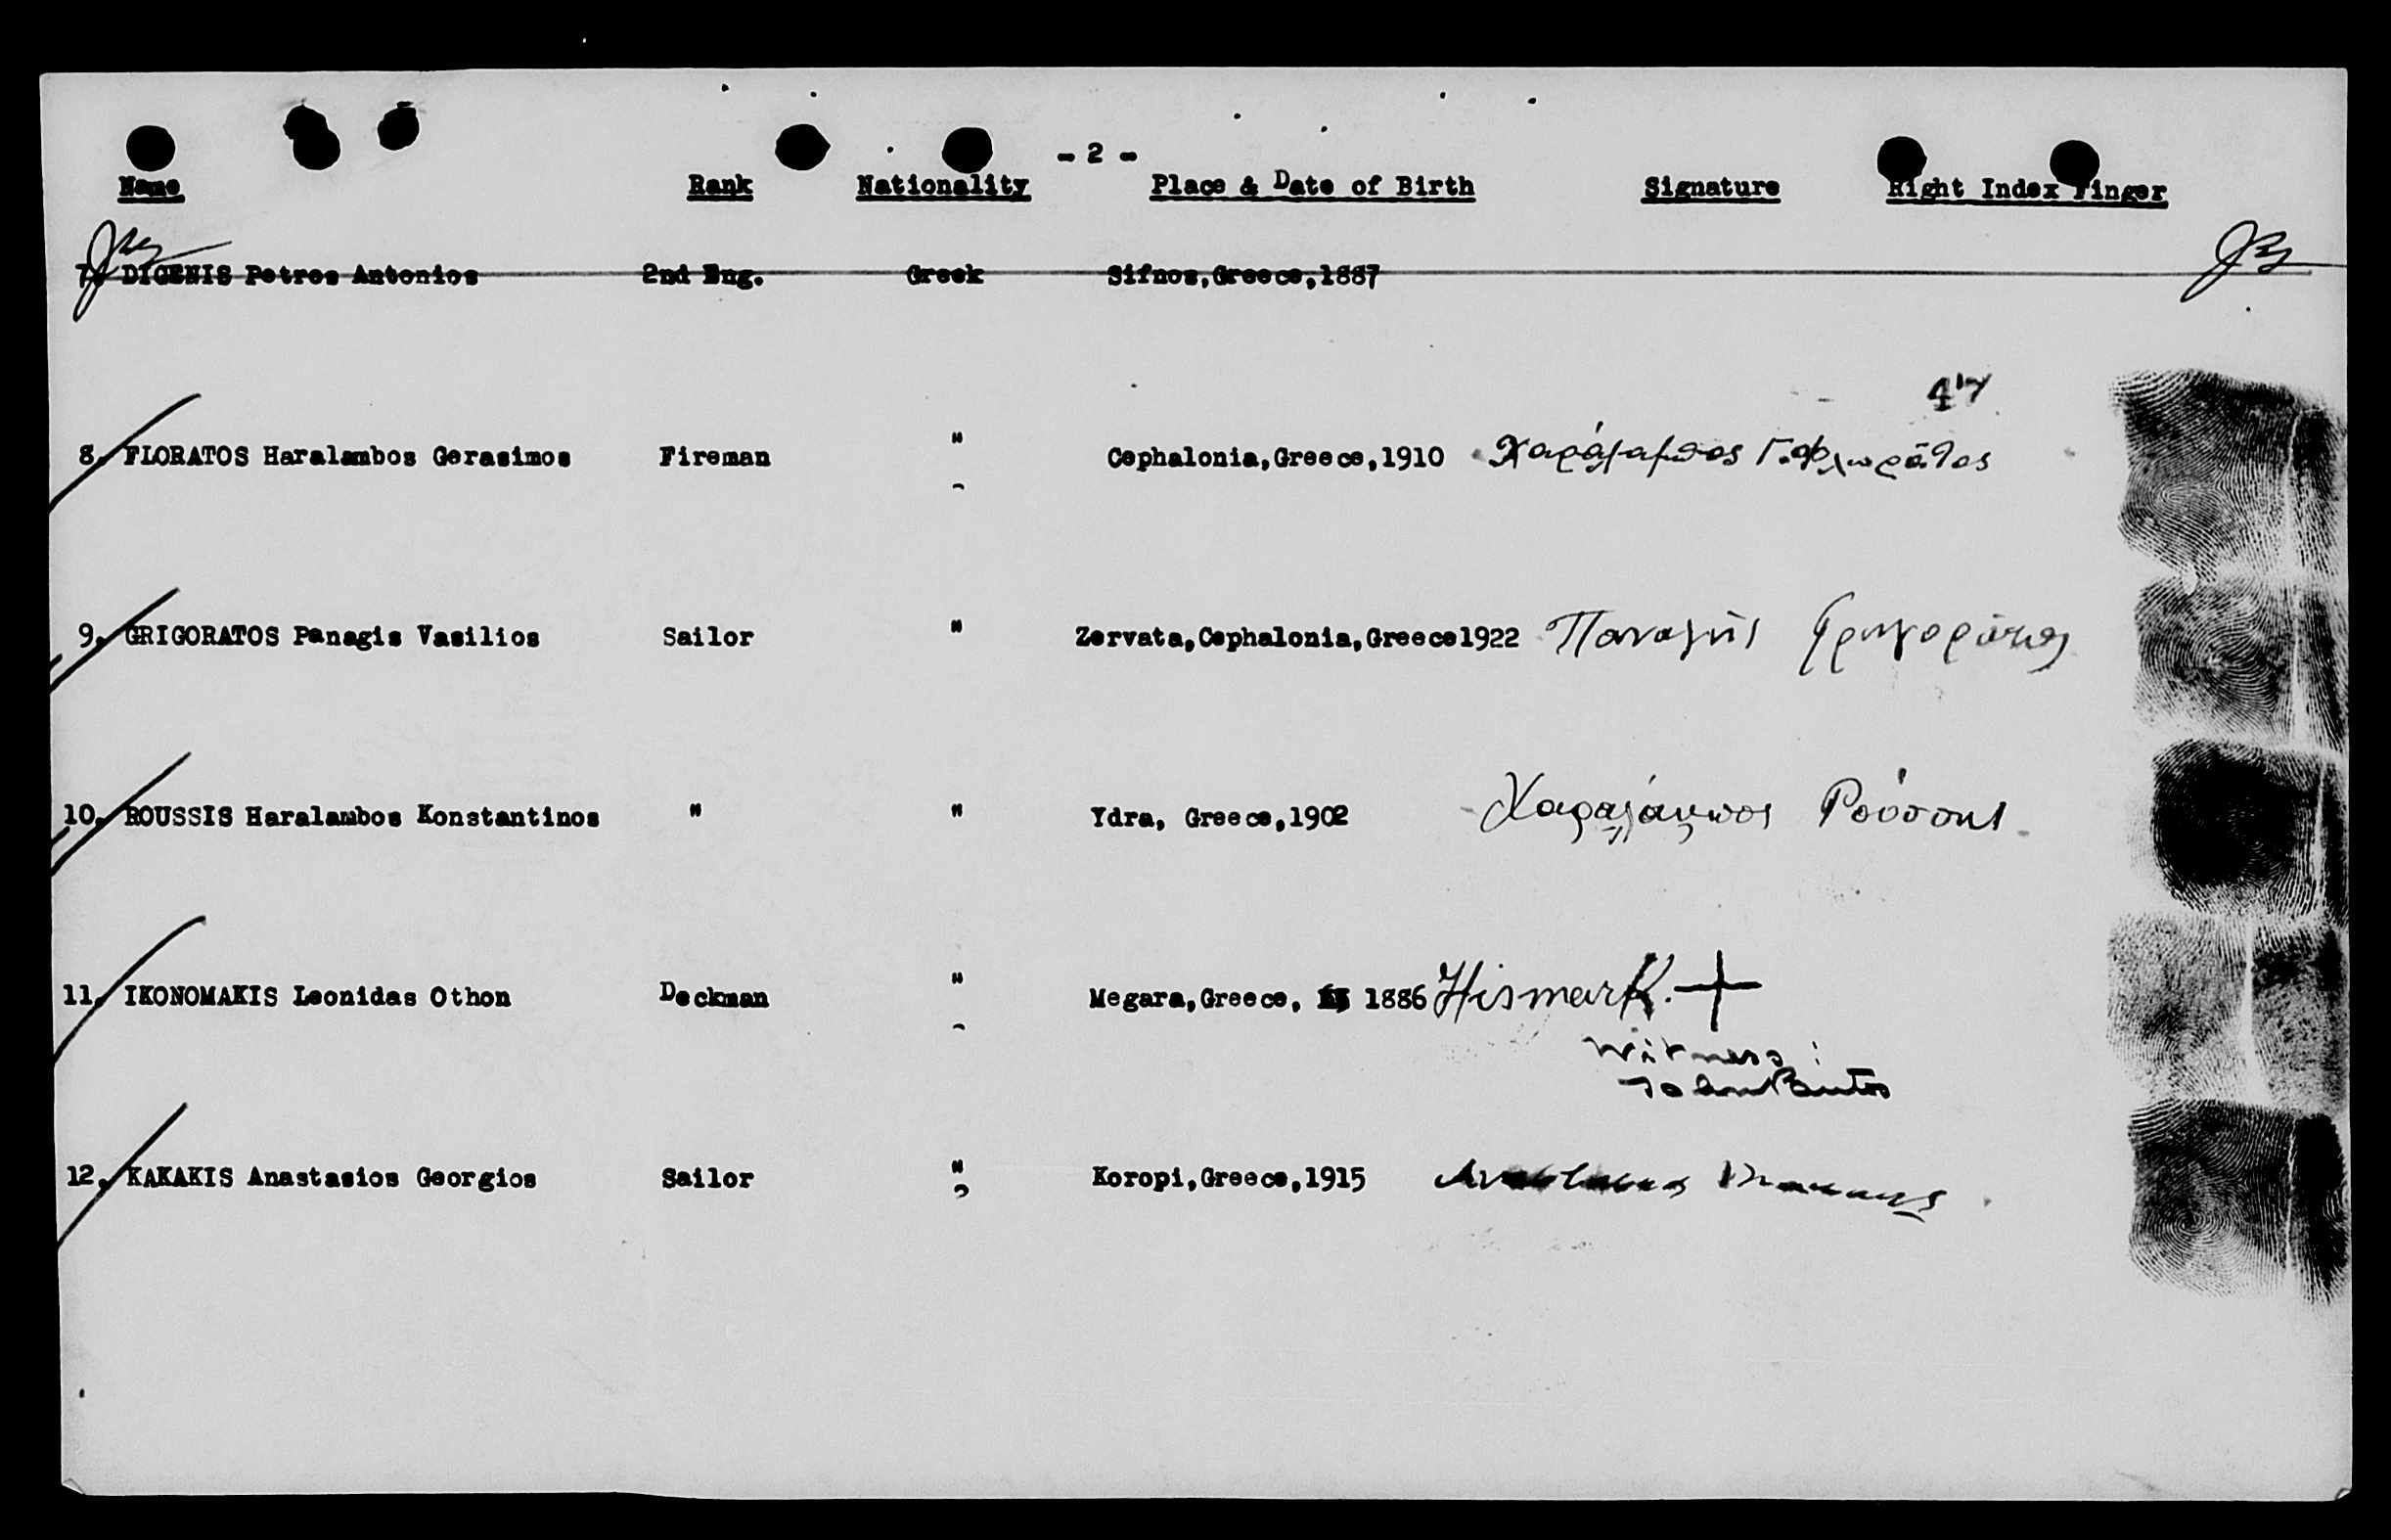 - 2 -
Name Rank Nationality Place & Date of Birth Signature Right Index Finger
7. DIGENIS Petros Antonios 2nd Eng. Greek Sifnos,Greece,1887
8. FLORATOS Haralambos Gerasimos Fireman " Cephalonia,Greece,1910 Χαράλαμπος Γ. Φλωράτος
9. GRIGORATOS Panagis Vasilios Sailor " Zervata,Cephalonia,Greece1922 Παναγής Γρηγοράτος
10. ROUSSIS Haralambos Konstantinos " " Ydra, Greece,1902 Χαραλάμπος Ρούσσης
11. IKONOMAKIS Leonidas Othon Deckman " Megara,Greece, 1886 His mark. +
Witness:
John
12. KAKAKIS Anastasios Georgios Sailor " Koropi,Greece,1915